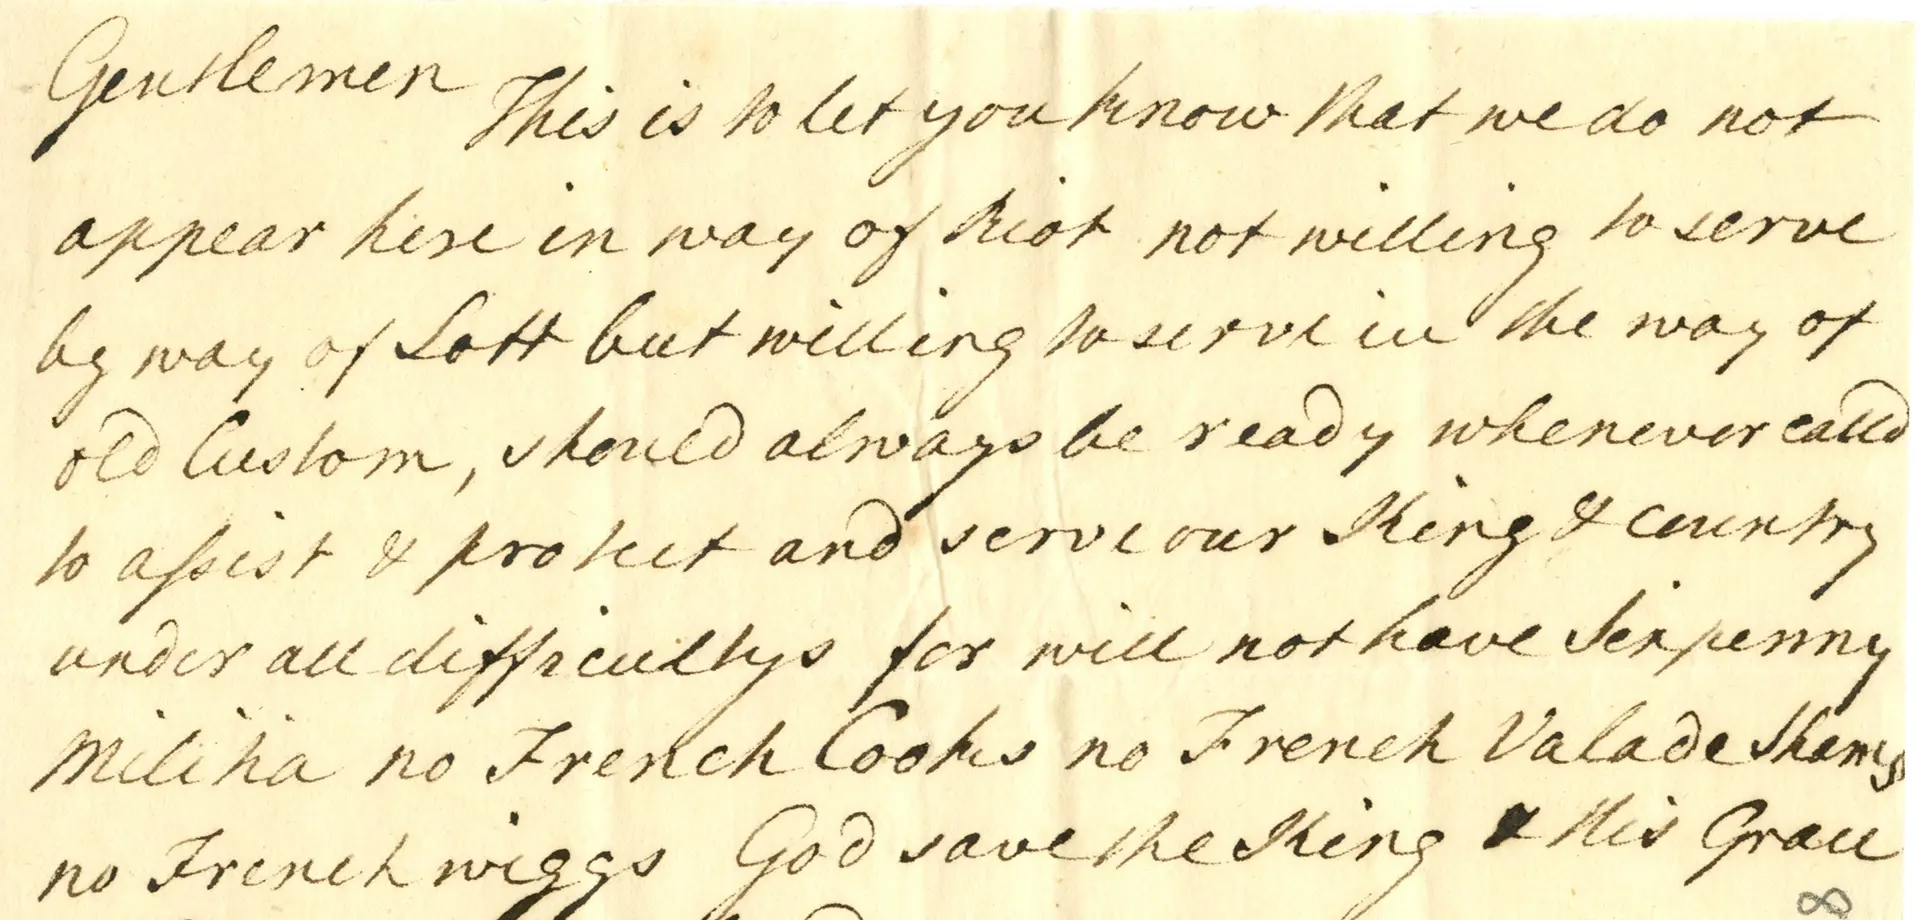 Gentlemen This is to let you know that we do not
appear here in way of Riot not willing to serve
by way of Lott but willing to serve in the way of
old Custom, should always be ready whenever calld
to assist & protect and serve our King & country
under all difficultys for will not have Sixpenny
Militia no French Cooks no French Valade Shams
no French wiggs God save the King & His Grace
8